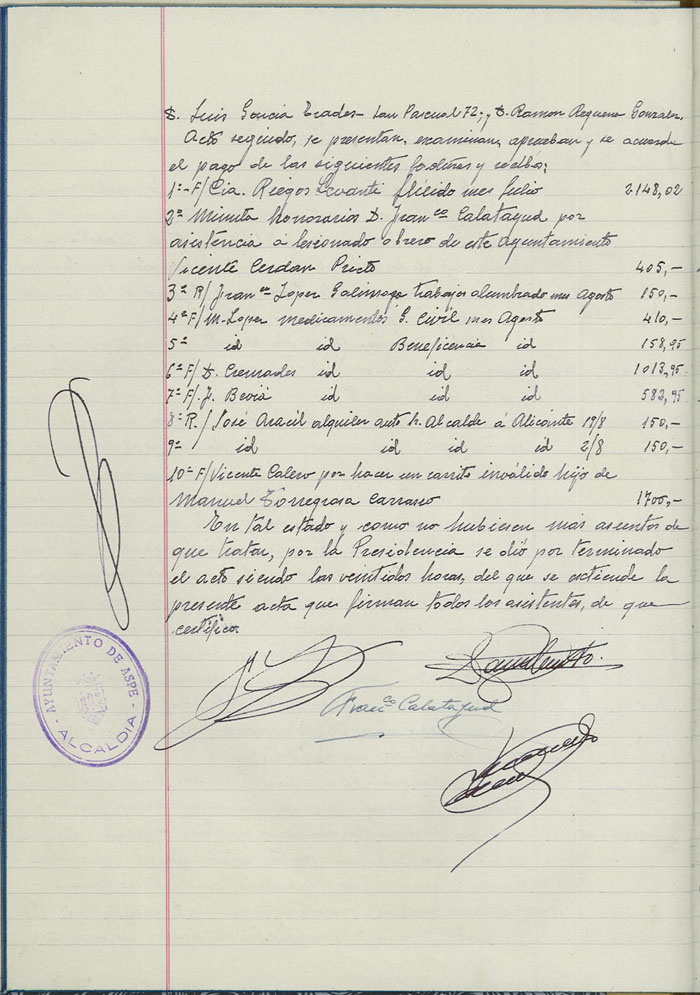 D. Luis García Prades- San Pascual 72; y D. Ramon Requena Gonzalez.
Acto seguido, se presentan, examinan, aprueban y se acuerda
el pago de las siguientes facturas y recibos:
1ª-F/Cia. Riegos Levante flúido mes Julio 2148,02
2ª Minuta honorarios D. Franco Calatayud por
asistencia á lesionado obrero de este Ayuntamiento
Vicente Cerdan Prieto 405,-
3ª R/ Franco Lopez Galinsoga trabajos alumbrado mes Agosto 150,-
4ª F/ M. Lopez medicamentos G. Civil mes Agosto 410,-
5ª id id Beneficencia id 158,95
6ª F/ D. Cremades id id id 1013,95
7ª F/. J. Beviá id id id 582,95
8ª R./ José Aracil alquiler auto Sr. Alcalde á Alicante 19/8 150,-
9ª id id id id 2/8 150,-
10ª F/ Vicente Calero por hacer un carrito inválido hijo de
Manuel Torregrosa Carrasco 1700,-
En tal estado y como no hubiesen más asuntos de
que tratar, por la Presidencia se dió por terminado
el acto siendo las veintidos horas, del que se extiende la
presente acta que firman todos los asistentes, de que
certifico.
Franco Calatayud
AYUNTAMIENTO DE ASPE
- ALCALDIA -